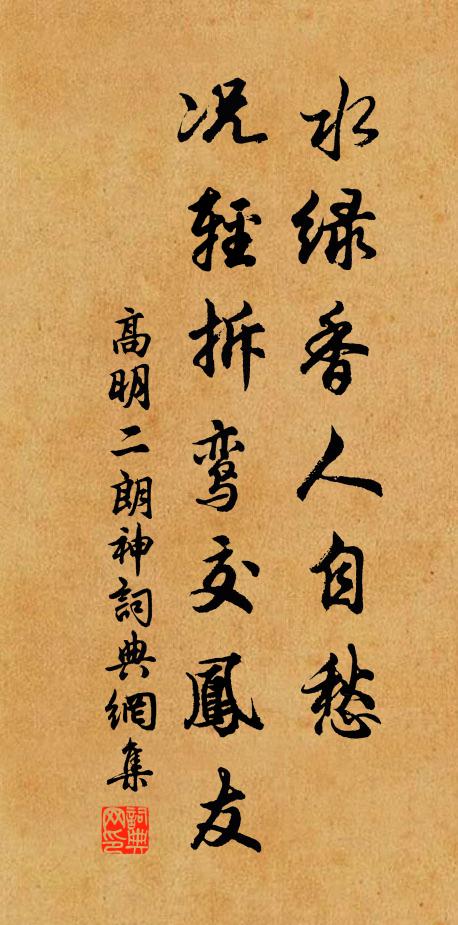 水绿香人自愁
况轻拆鸾交鳳友
高明二朗神詞典網集
詞典网印